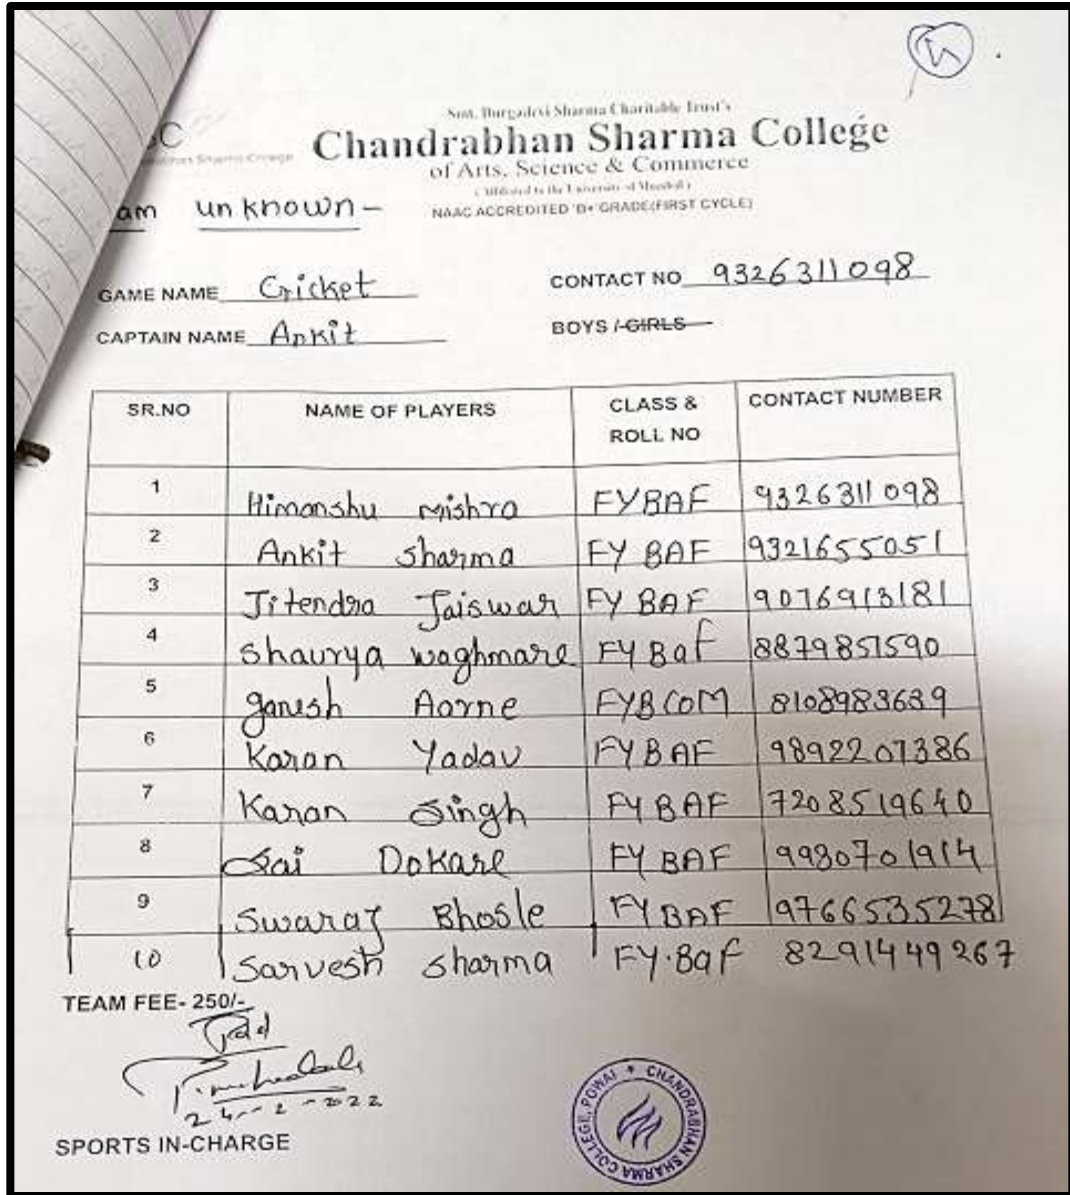 Smt. Durgadevi Sharma Charitable Trust's
Chandrabhan Sharma College
of Arts, Science & Commerce
(Affiliated to the University of Mumbai)
NAAC ACCREDITED 'B+' GRADE(FIRST CYCLE)
am unknown-
GAME NAME Cricket CONTACT NO 9326311098
CAPTAIN NAME Ankit BOYS / GIRLS
SR.NO NAME OF PLAYERS CLASS & ROLL NO CONTACT NUMBER
1 Himanshu Mishra FYBAF 9326311098
2 Ankit Sharma FY BAF 9321655051
3 Jitendra Jaiswar FY BAF 9076913181
4 Shaurya Waghmare FY Baf 8879851590
5 ganesh Aarne FYBCOM 8108983639
6 Karan Yadav FYBAF 9892207386
7 Karan Singh FY BAF 7208519640
8 Sai Dokare FY BAF 9930701914
9 Swaraj Bhosle FYBAF 9766535278
10 Sarvesh Sharma FY.Baf 8291449267
TEAM FEE- 250/-
24-2-2022
SPORTS IN-CHARGE
CHANDRABHAN SHARMA COLLEGE, POWAI